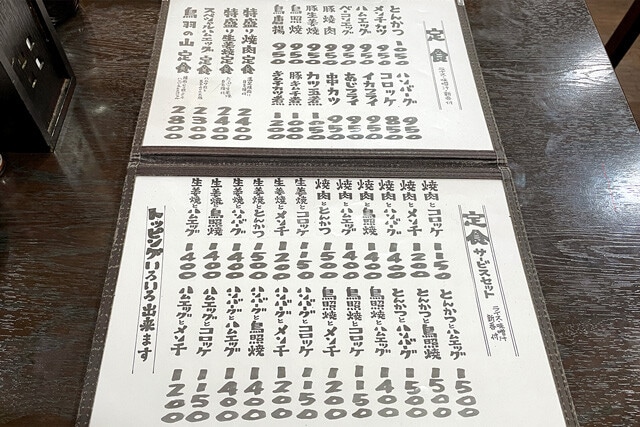 定食
ライス・味噌汁・新香付
とんかつ 1050
メンチカツ 950
ベーコンエッグ 950
ハムエッグ 950
豚焼肉 950
豚生姜焼 950
鳥照焼 950
鳥唐揚 950
ハンバーグ 950
コロッケ 850
イカフライ 950
あじフライ 950
串カツ
カツ玉煮
豚キムチ煮
特盛り焼肉定食 2400
特盛り生姜焼定食 2400
スペシャルハムエッグ定食 2300
鳥羽の山定食 2800
定食サービスセット
ライス・味噌汁
新香付
焼肉とコロッケ 1150
焼肉とメンチ 1200
焼肉とハンバーグ 1400
焼肉と鳥照焼 1400
焼肉とハムエッグ 1400
焼肉ととんかつ 1500
生姜焼とコロッケ 1150
生姜焼とメンチ 1200
生姜焼ととんかつ 1500
生姜焼とハンバーグ 1400
生姜焼と鳥照焼 1400
生姜焼とハムエッグ 1400
とんかつとハムエッグ 1500
とんかつと鳥照焼 1500
とんかつとハンバーグ 1500
鳥照焼とハムエッグ 1400
鳥照焼とコロッケ 1150
鳥照焼とメンチ 1200
ハンバーグとコロッケ 1150
ハンバーグとメンチ 1200
ハンバーグと鳥照焼 1400
ハンバーグとハムエッグ 1400
ハムエッグとコロッケ 1150
ハムエッグとメンチ 1200
トッピングいろいろ出来ます